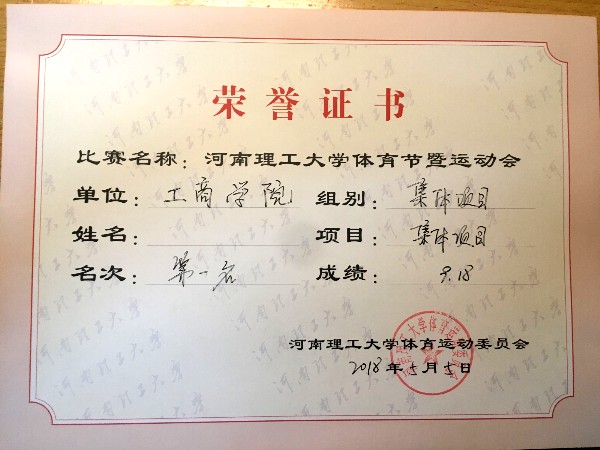 荣誉证书
比赛名称：河南理工大学体育节暨运动会
单位：工商学院 组别：集体项目
姓名： 项目：集体项目
名次：第一名 成绩：9.18
河南理工大学体育运动委员会
2018年5月5日